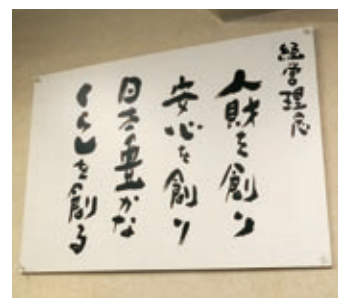 経営理念
人財を創り
安心を創り
日々豊かな
くらしを創る